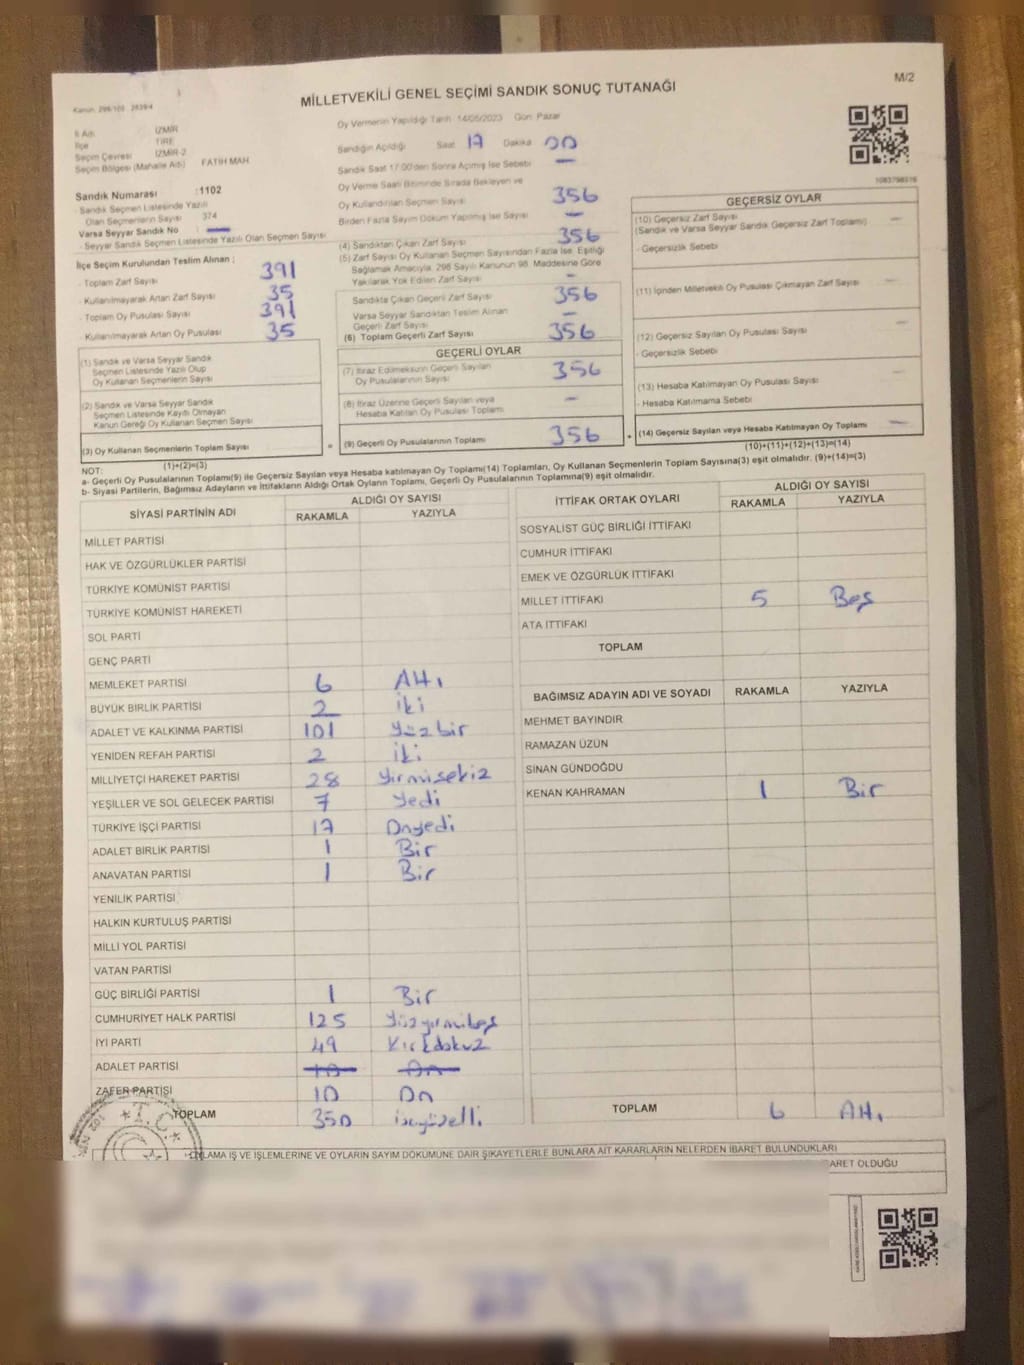 M/2
MİLLETVEKİLİ GENEL SEÇİMİ SANDIK SONUÇ TUTANAĞI
Kanun: 298/105 2839/4
İl Adı İZMİR
İlçe TİRE
Seçim Çevresi İZMİR-2
Seçim Bölgesi (Mahalle Adı) FATİH MAH
Sandık Numarası :1102
- Sandık Seçmen Listesinde Yazılı
Olan Seçmenlerin Sayısı 374
Varsa Seyyar Sandık No : —
- Seyyar Sandık Seçmen Listesinde Yazılı Olan Seçmen Sayısı
İlçe Seçim Kurulundan Teslim Alınan ;
- Toplam Zarf Sayısı 391
- Kullanılmayarak Artan Zarf Sayısı 35
- Toplam Oy Pusulası Sayısı 391
- Kullanılmayarak Artan Oy Pusulası 35
(1) Sandık ve Varsa Seyyar Sandık
Seçmen Listesinde Yazılı Olup
Oy Kullanan Seçmenlerin Sayısı
(2) Sandık ve Varsa Seyyar Sandık
Seçmen Listesinde Kaydı Olmayan
Kanun Gereği Oy Kullanan Seçmen Sayısı
(3) Oy Kullanan Seçmenlerin Toplam Sayısı
(1)+(2)=(3)
Oy Vermenin Yapıldığı Tarih 14/05/2023 Gün: Pazar
Sandığın Açıldığı Saat 17 Dakika 00
Sandık Saat 17:00'den Sonra Açılmış İse Sebebi —
Oy Verme Saati Bitiminde Sırada Bekleyen ve
Oy Kullandırılan Seçmen Sayısı 356
Birden Fazla Sayım Döküm Yapılmış İse Sayısı —
(4) Sandıktan Çıkan Zarf Sayısı 356
(5) Zarf Sayısı Oy Kullanan Seçmen Sayısından Fazla İse, Eşitliği
Sağlamak Amacıyla, 298 Sayılı Kanunun 98. Maddesine Göre
Yakılarak Yok Edilen Zarf Sayısı —
Sandıkta Çıkan Geçerli Zarf Sayısı 356
Varsa Seyyar Sandıktan Teslim Alınan
Geçerli Zarf Sayısı —
(6) Toplam Geçerli Zarf Sayısı 356
GEÇERLİ OYLAR
(7) İtiraz Edilmeksizin Geçerli Sayılan
Oy Pusulalarının Sayısı 356
(8) İtiraz Üzerine Geçerli Sayılan veya
Hesaba Katılan Oy Pusulası Toplamı —
= (9) Geçerli Oy Pusulalarının Toplamı 356 +
1083798516
GEÇERSİZ OYLAR
(10) Geçersiz Zarf Sayısı —
(Sandık ve Varsa Seyyar Sandık Geçersiz Zarf Toplamı)
- Geçersizlik Sebebi
(11) İçinden Milletvekili Oy Pusulası Çıkmayan Zarf Sayısı —
(12) Geçersiz Sayılan Oy Pusulası Sayısı —
- Geçersizlik Sebebi
(13) Hesaba Katılmayan Oy Pusulası Sayısı —
- Hesaba Katılmama Sebebi
(14) Geçersiz Sayılan veya Hesaba Katılmayan Oy Toplamı —
(10)+(11)+(12)+(13)=(14)
NOT:
a- Geçerli Oy Pusulalarının Toplam(9) ile Geçersiz Sayılan veya Hesaba katılmayan Oy Toplamı(14) Toplamları, Oy Kullanan Seçmenlerin Toplam Sayısına(3) eşit olmalıdır. (9)+(14)=(3)
b- Siyasi Partilerin, Bağımsız Adayların ve İttifakların Aldığı Ortak Oyların Toplamı, Geçerli Oy Pusulalarının Toplamına(9) eşit olmalıdır.
SİYASİ PARTİNİN ADI ALDIĞI OY SAYISI
RAKAMLA YAZIYLA
MİLLET PARTİSİ
HAK VE ÖZGÜRLÜKLER PARTİSİ
TÜRKİYE KOMÜNİST PARTİSİ
TÜRKİYE KOMÜNİST HAREKETİ
SOL PARTİ
GENÇ PARTİ
MEMLEKET PARTİSİ 6 Altı
BÜYÜK BİRLİK PARTİSİ 2 iki
ADALET VE KALKINMA PARTİSİ 101 Yüzbir
YENİDEN REFAH PARTİSİ 2 iki
MİLLİYETÇİ HAREKET PARTİSİ 28 Yirmisekiz
YEŞİLLER VE SOL GELECEK PARTİSİ 7 Yedi
TÜRKİYE İŞÇİ PARTİSİ 17 Onyedi
ADALET BİRLİK PARTİSİ 1 Bir
ANAVATAN PARTİSİ 1 Bir
YENİLİK PARTİSİ
HALKIN KURTULUŞ PARTİSİ
MİLLİ YOL PARTİSİ
VATAN PARTİSİ
GÜÇ BİRLİĞİ PARTİSİ 1 Bir
CUMHURİYET HALK PARTİSİ 125 Yüzyirmibeş
İYİ PARTİ 49 Kırkdokuz
ADALET PARTİSİ 10 On
ZAFER PARTİSİ 10 On
TOPLAM 350 üçyüzelli
İTTİFAK ORTAK OYLARI ALDIĞI OY SAYISI
RAKAMLA YAZIYLA
SOSYALİST GÜÇ BİRLİĞİ İTTİFAKI
CUMHUR İTTİFAKI
EMEK VE ÖZGÜRLÜK İTTİFAKI
MİLLET İTTİFAKI 5 Beş
ATA İTTİFAKI
TOPLAM
BAĞIMSIZ ADAYIN ADI VE SOYADI RAKAMLA YAZIYLA
MEHMET BAYINDIR
RAMAZAN ÜZÜN
SİNAN GÜNDOĞDU
KENAN KAHRAMAN 1 Bir
TOPLAM 6 Altı
T.C.
OYLAMA İŞ VE İŞLEMLERİNE VE OYLARIN SAYIM DÖKÜMÜNE DAİR ŞİKAYETLERLE BUNLARA AİT KARARLARIN NELERDEN İBARET BULUNDUKLARI
ARET OLDUĞU